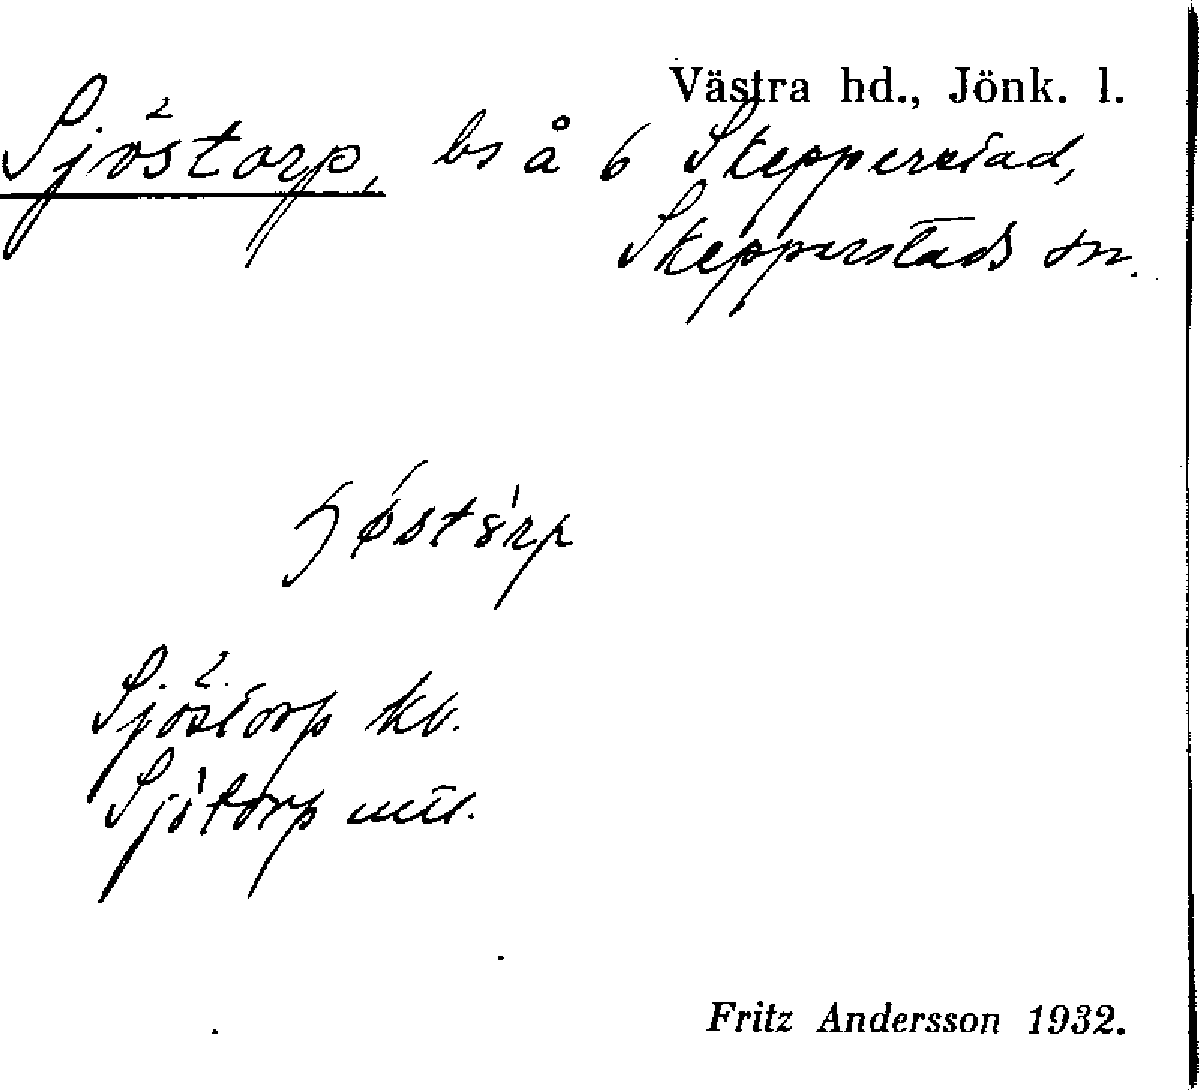 Västra hd., Jönk. l.
Sjöstorp, bs å 6 Skepperstad,
Skepperstads sn.
Sjöstorp kb.
Sjötorp
Fritz Andersson 1932.